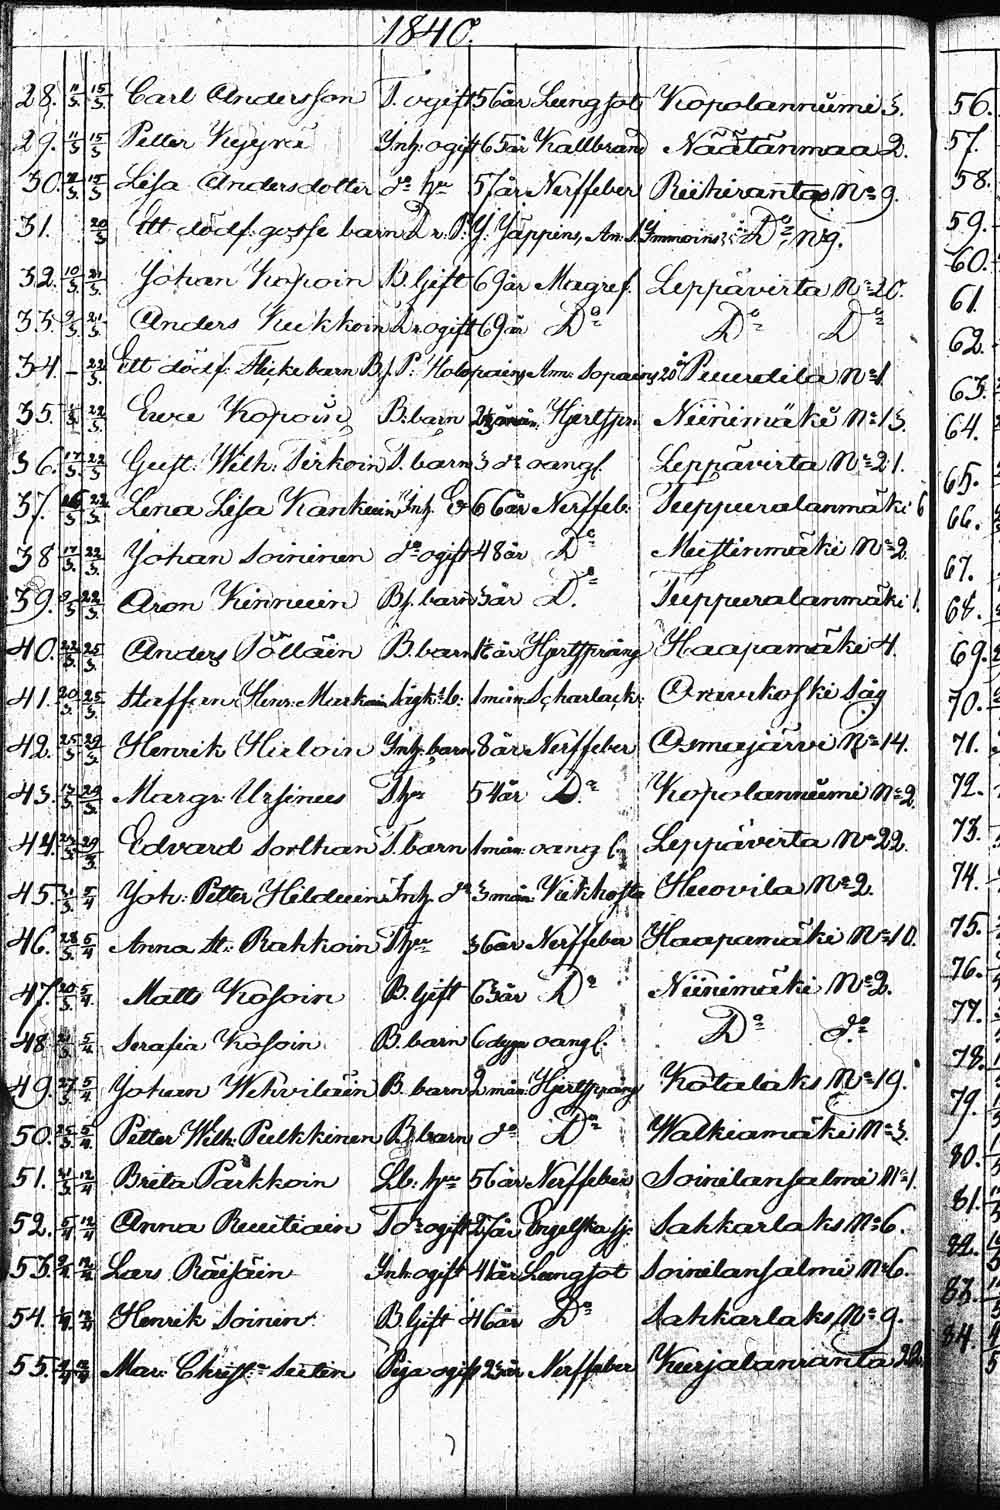 1840.
28. 11/3 15/3 Carl Andersson T. ogift 56 år Lungsot Kopolanniemi 3.
29. 11/3 15/3 Petter Kyyrä Inh: ogift 65 år Kallbrand Näätänmaa 2.
30. 15/3 Lisa Andersdotter do hu 57 år Nerffeber Riihiranta No 9.
31. 20/3 Ett dödf. gosse barn P: Jäppins, An: Immoins Do No 9.
32. 10/3 21/3 Johan Kopoin B. Gift 69 år Magref. Leppävirta No 20.
33. 9/3 21/3 Anders Kukkoin ogift 69 år Do Do Do
34. – 22/3 Ett dödf: Flickebarn B. s. P: Holopains Ann: Sopains 20 år Puurdila No 1
35. 22/3 Ewa Kopoin B: barn Hjertspr: Niinimäki No 13.
36. 17/3 22/3 Gust: Wilh: Tirkoin T. barn 3 do oangf. Leppävirta No 21.
37. 22/3 Lena Lisa Kankuin Inh. E 66 år Nerffeb: Tuppuralanmäki 6
38 17/3 22/3 Johan Soininen do ogift 48 år Do Mustinmäki No 2.
39. 9/3 22/3 Aron Kinnuin Bs. barn 3 år Do Tuppuralanmäki 1.
40. 22/3 25/3 Anders Pöllöin B. barn år Hjertsprång Haapamäki 4.
41. 20/3 25/3 Staffan Henr: Markain Sågk: b: 1 mån: Scharlack: Orawikoski Såg
42. 25/3 29/3 Henrik Hirloin Inh: barn 8 år Nerffeber Osmajärvi No 14.
43. 29/3 Margr: Ursinus T. hu 54 år Do Kopolanniemi No 2.
44. 29/3 Edvard Sorlhan T. barn 1 mån: oangf. Leppävirta No 22.
45. 31/3 5/4 Joh: Petter Hilduin Inh. do 3 mån Kikhosta Huovila No 2.
46. 28/3 5/4 Anna St: Rahkoin T. hu 36 år Nerffeber Haapamäki No 10.
47. 20/3 5/4 Matts Kosoin B. Gift 63 år Do Niinimäki No 2.
48 21/3 5/4 Serafia Kosoin B. barn 6 dygn oangf. Do do
49. 27/3 5/4 Johan Wehviläin B. barn 2 mån: Hjertsprång Kotalaks No 19.
50. 25/3 5/4 Petter Wilh: Pulkkinen B. barn do Do Walkiamäki No 3.
51. 21/3 12/4 Brita Parkkoin Lb: hu 56 år Nerffeber Soinilansalmi No 1.
52. 5/4 12/4 Anna Ruutiain ogift 27 år Engelska sj: Sahkarlaks No 6.
53. 9/4 12/4 Lars Räisäin Inh: ogift 41 år Lungsot Soinilansalmi No 6.
54. 12/4 Henrik Soinin B. Gift 46 år Do Sahkarlaks No 9.
55. 12/4 Mar: Christ: Sutin Piga ogift 23 år Nerffeber Kurjalanranta
56.
57.
58.
59.
60.
61.
62.
63.
64.
65.
66.
67.
68.
69.
70.
71.
72.
73.
74.
75.
76.
77.
78.
79.
80.
81.
82.
83.
84.